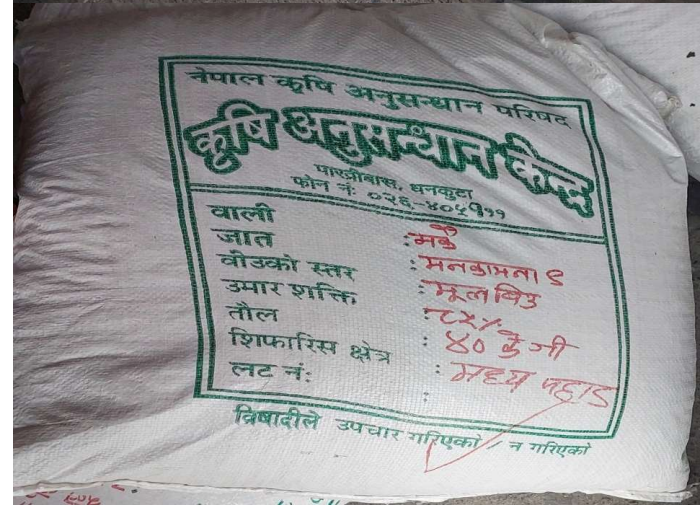 नेपाल कृषि अनुसन्धान परिषद
कृषि अनुसन्धान केन्द्र
पाख्रीबास, धनकुटा
फोन नं: ०२६-४०५१११
वाली : मकै
जात : मनकामना ९
वीउको स्तर : मूल विउ
उमार शक्ति : ८५%
तौल : ४० के जी
शिफारिस क्षेत्र : मध्य पहाड
लट नं: :
विषादीले उपचार गरिएको / न गरिएको